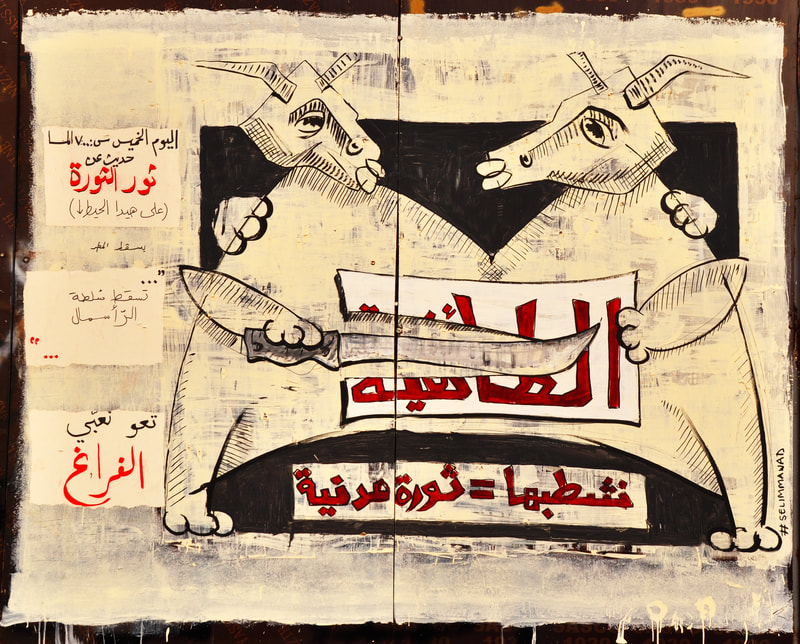 اليوم الخميس س...٧ المسا
حديث عن
ثور الثورة
(على هيدا الحيط)
يسقط
"...
تسقط سلطة
الرأسمال
..."
تعو نعبّي
الفراغ
الطائفية
نشطبها = ثورة مدنية
#SELIMMAWAD